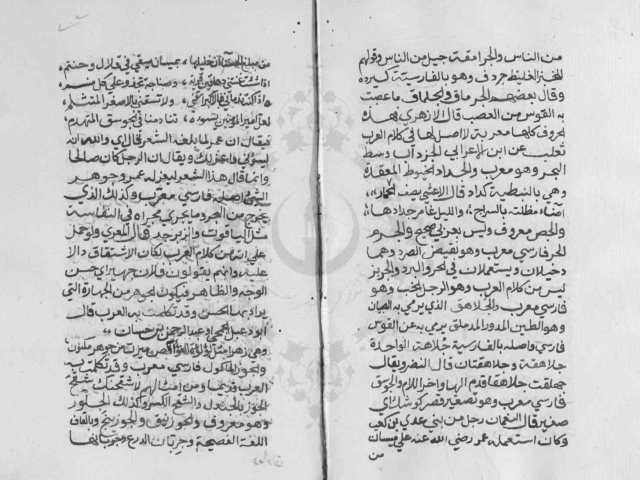 من الناس والجرامقة جيل من الناس وقولهم
للخبز الغليظ جردق وهو بالفارسية كرده
وقال بعضهم الجرماق والجلماق ما عصب
به القوس من العصب قال الازهري بهذه
الحروف كلها معربة لا اصل لها في كلام العرب
ثعلب عن ابن الاعرابي الجزداب وسط
البحر وهو معرب والجداد الخيوط المعقدة
وهي بالنبطية كداد قال الاعشى يصف الخمار
اضاء مظلته بالسراج والليل غامر جدادها
والجص معروف وليس بعربي صحيح والجرم
الحر فارسي معرب وهو نقيض الصرد وهما
دخيلان ويستعملان في الحر والبرد والجربز
ليس من كلام العرب وهو الرجل الخب وهو
فارسي معرب والجلاهق الذي يرمي به الصبيان
وهو الطين المدور المدملق يرمى به عن القوس
فارسي واصله بالفارسية جلاهة الواحدة
جلاهقة وجلاهقتان قال النضر ويقال
جهلقت جلاهقا قدم الها واخر اللام والجوسق
فارسي معرب وهو تصغير قصر كوشك اي
صغير قال النعمان رجل من بني عدي بن كعب
وكان استعمله عمر رضي الله عنه على ميسان
من
من مبلغ الحسناء ان خليلها بميسان يسقى في قلال وحنتم
اذا شئت غنتني دهاقين قرية وصناجة تجذو على كل منسم
فاذا كنت ندماني فبالاكبر اسقني ولا تسقني بالاصغر المتثلم
لعل امير المومنين يسوءه تنادمنا في الجوسق المتهدم
فيقال ان عمر لما بلغه الشعر قال اي والله انه
ليسؤني واعزلك ويقال ان الرجل كان صالحا
وانما قال هذا الشعر ليعزله عمر وجوهر
الشي اصله فارسي معرب وكذلك الذي
يخرج من البحر وما يجري مجراه في النفاسة
مثل الياقوت والزبرجد قال المعري ولو حمل
على انه من كلام العرب لكان الاشتقاق دالا
عليه وانهم يقولون فلان جهير اي حسن
الوجه والظاهر فيكون الجوهر من الجهارة التي
يراد بها الحسن وقد تكلمت به العرب قال
ابو دهبل الجمحي او عبد الرحمن بن حسان
وهي زهراء مثل لؤلؤة الغواص ميزت من جوهر مكنون
والجوز الماكول فارسي معرب وقد تكلمت به
العرب قديما ومن امثالهم لاشقحنك شقح
الجوز بالجندل والشقح الكسر وكذلك الجلوز
وهو معروف والجوزينق والجوزينج وبالقاف
اللغة الفصيحة وجربان الدرع وجربانها